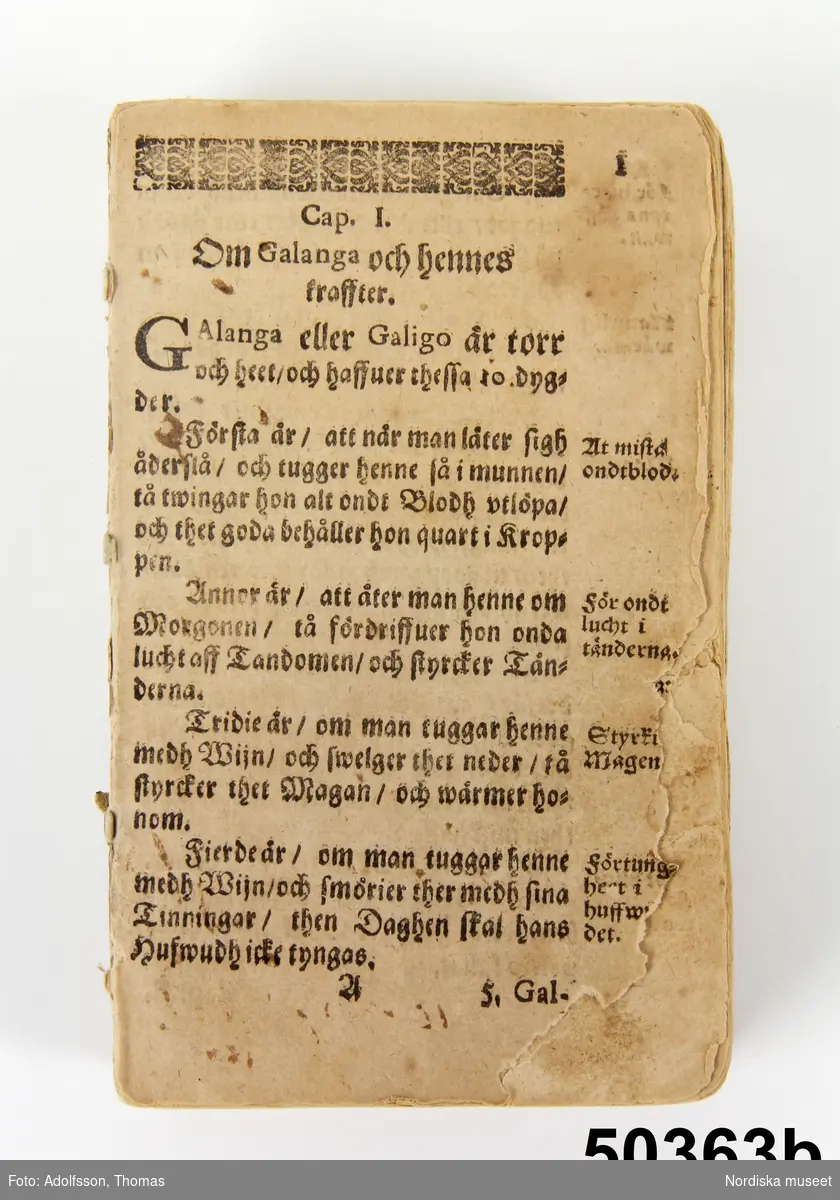 1
Cap. I.
Om Galanga och hennes
kraffter.
GAlanga eller Galigo är torr
och heet/och haffuer thessa 10.dyg⸗
der.
Första är/ att när man låter sigh
åderslå/ och tugger henne så i munnen/
tå twingar hon alt ondt Blodh vtlöpa/
och thet goda behåller hon quart i Krop⸗
pen.
Annor är/ att äter man henne om
Morgonen/ tå fördriffuer hon onda
lucht aff Tandomen/ och styrcker Tän⸗
derna.
Tridie är/ om man tuggar henne
medh Wijn/ och swelger thet neder/ tå
styrcker thet Magan/ och wärmer ho⸗
nom.
Fierde är/ om man tuggar henne
medh Wijn/och smörier ther medh sina
Tinningar/ then Daghen skal hans
Hufwudh icke tyngas.
A 5. Gal-
At mista
ondtblod.
För ondt
lucht i
tänderna.
Styrki
Magen
Förtung⸗
heet i
huffw
det.
50363b
Foto: Adolfsson, Thomas
Nordiska museet